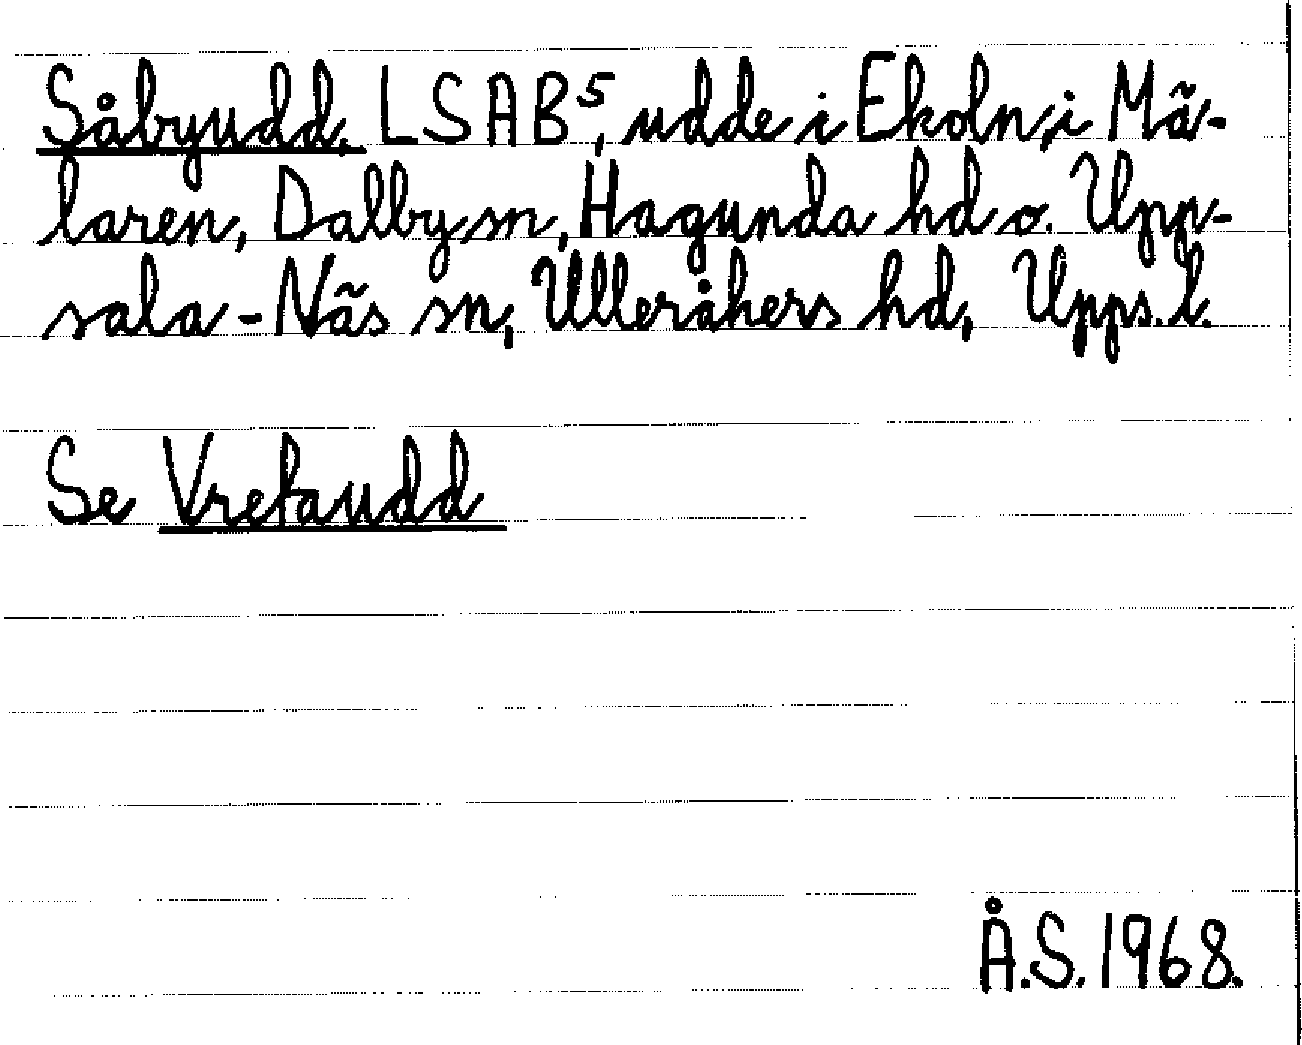 Såbyudd. LSAB⁵, udde i Ekoln, i Mä-
laren, Dalby sn, Hagunda hd o. Upp-
sala-Näs sn, Ulleråkers hd, Upps. l.
Se Vretaudd
Å.S. 1968.